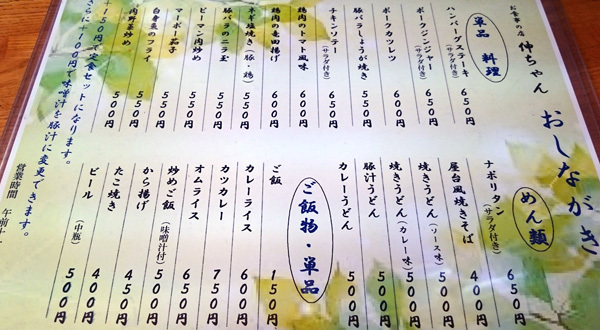 おしながき
お食事の店 仲ちゃん
単品 料理
ハンバーグステーキ(サラダ付き) 650円
ポークジンジャー(サラダ付き) 650円
ポークカツレツ 600円
豚バラしょうが焼き 550円
チキンソテー(サラダ付き) 650円
鶏肉のトマト風味 600円
鶏肉の竜田揚げ 500円
ネギ塩焼き(豚・鶏) 550円
豚バラのニラ玉 550円
ピーマン肉炒め 550円
マーボー茄子 550円
白身魚のフライ 500円
肉野菜炒め 550円
150円で定食セットになります。
さらに、100円で味噌汁を豚汁に変更できます。
めん類
ナポリタン(サラダ付き) 650円
屋台風焼きそば 400円
焼きうどん(ソース味) 500円
焼きうどん(カレー味) 500円
豚汁うどん 500円
カレーうどん 500円
ご飯物・単品
ご飯 150円
カレーライス 600円
カツカレー 750円
オムライス 650円
炒めご飯(味噌汁付) 500円
から揚げ 450円
たこ焼き 400円
ビール(中瓶) 500円
営業時間 午前十